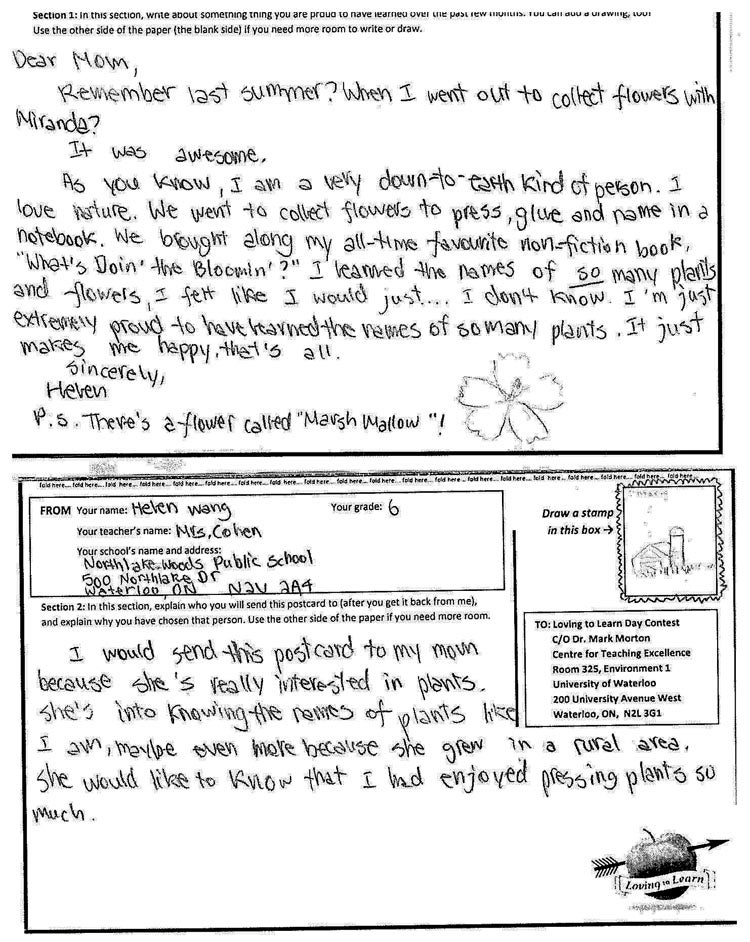 Section 1: In this section, write about something thing you are proud to have learned over the past few months. You can add a drawing, too!
Use the other side of the paper (the blank side) if you need more room to write or draw.
Dear Mom,
Remember last summer? When I went out to collect flowers with
Miranda?
It was awesome.
As you know, I am a very down-to-earth kind of person. I
love nature. We went to collect flowers to press, glue and name in a
notebook. We brought along my all-time favourite non-fiction book,
"What's Doin' the Bloomin'?" I learned the names of so many plants
and flowers, I felt like I would just.... I don't know. I'm just
extremely proud to have learned the names of so many plants. It just
makes me happy, that's all.
Sincerely,
Helen
P.S. There's a flower called "Marsh Mallow"!
fold here... fold here... fold here... fold here... fold here... fold here... fold here... fold here... fold here... fold here... fold here... fold here... fold here... fold here... fold here... fold here...
FROM Your name: Helen Wang Your grade: 6
Your teacher's name: Mrs. Cohen
Your school's name and address:
Northlake Woods Public School
500 Northlake Dr
Waterloo, ON N2V 2A4
Draw a stamp
in this box →
Section 2: In this section, explain who you will send this postcard to (after you get it back from me),
and explain why you have chosen that person. Use the other side of the paper if you need more room.
TO: Loving to Learn Day Contest
C/O Dr. Mark Morton
Centre for Teaching Excellence
Room 325, Environment 1
University of Waterloo
200 University Avenue West
Waterloo, ON, N2L 3G1
I would send this postcard to my mom
because she's really interested in plants.
She's into knowing the names of plants like
I am, maybe even more because she grew in a rural area.
She would like to know that I had enjoyed pressing plants so
much.
Loving to Learn